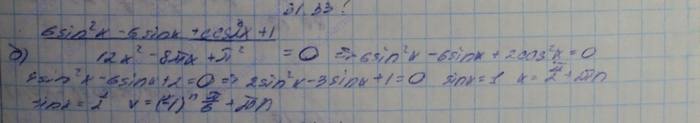 21.33!
6sin²x - 6sinx + cos2x + 1
б) 12x² - 8πx + π² = 0 => 6sin²x - 6sinx + 2cos²x = 0
4sin²x - 6sinx + 2 = 0 => 2sin²x - 3sinx + 1 = 0 sinx = 1 x = π/2 + πn
sinx = 1/2 x = (-1)ⁿ π/6 + πn